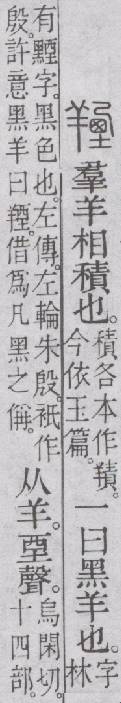 𦎣 羣羊相積也。積各本作。今依玉篇。一曰黑羊也。字林
有黫字。黑色也。左傳。左輪朱殷。衹作殷。許意黑羊曰𦎣。借爲凡黑之偁。从羊。垔聲。烏閑切。十四部。